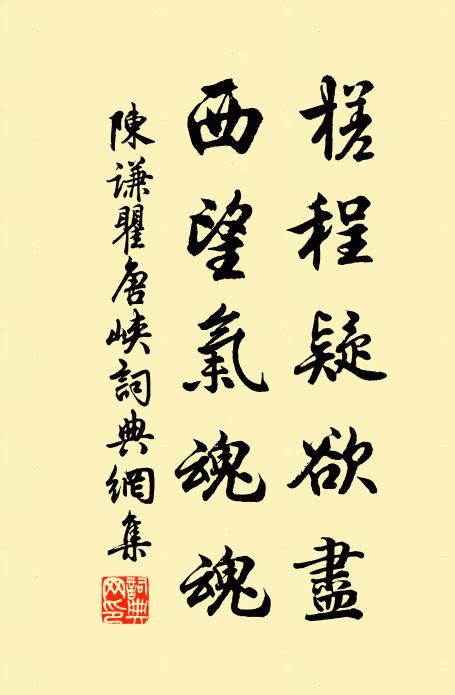 槎程疑欲盡
西望氣魂魂
陳謙瞿唐峽詞典網集
詞典网印